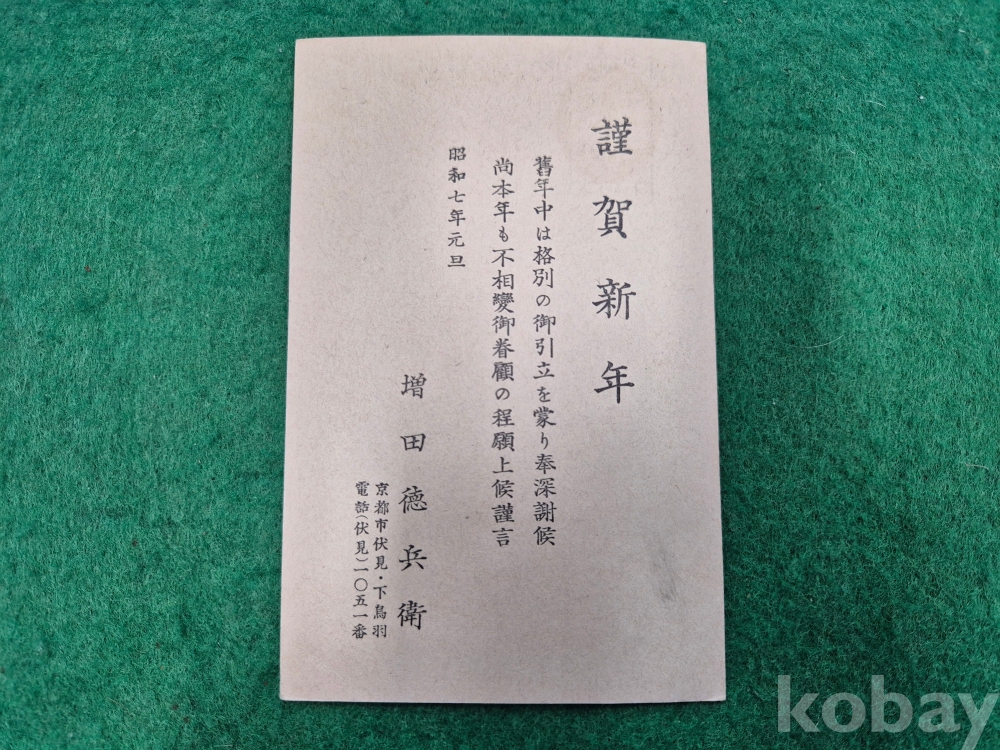 謹賀新年
舊年中は格別の御引立を蒙り奉深謝候
尚本年も不相變御眷顧の程願上候謹言
昭和七年元旦
増田徳兵衛
京都市伏見・下鳥羽
電話(伏見)二〇五一番
kobay